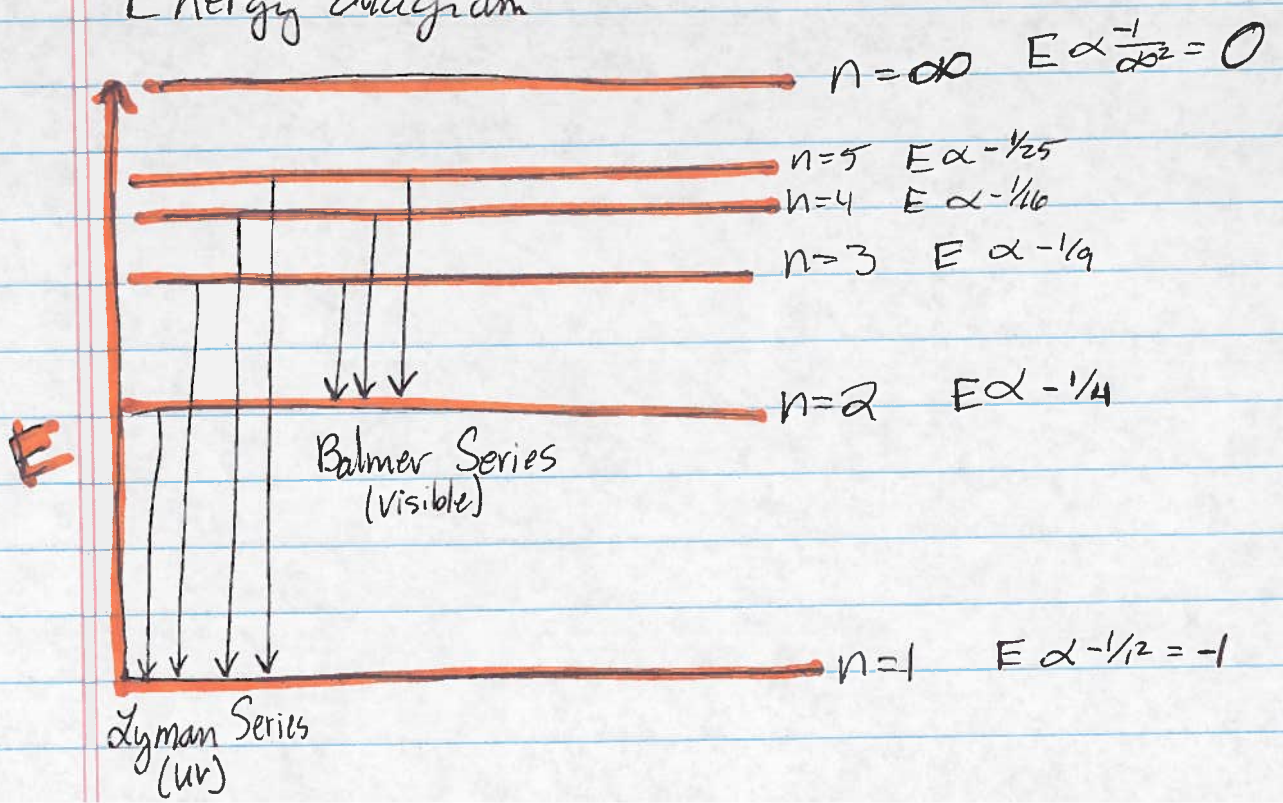 Energy diagram
n=∞ E ∝ -1/∞² = 0
n=5 E ∝ -1/25
n=4 E ∝ -1/16
n=3 E ∝ -1/9
n=2 E ∝ -1/4
E
Balmer Series
(visible)
n=1 E ∝ -1/1² = -1
Lyman Series
(UV)